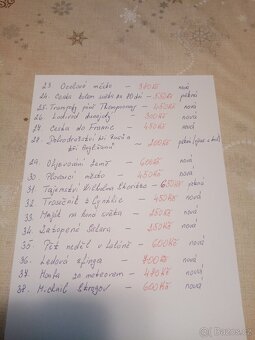 23. Ocelové město - 380Kč nová
24. Cesta kolem světa za 80 dní - 550Kč pěkná
25. Trampoty páně Thompsonovy - 450Kč nová
26. Lodivod dunajský - 300Kč nová
27. Cesta do Francie - 450Kč nová
28. Dobrodružství tří Rusů a
tří Angličanů - 200Kč
29. Objevování země - 600Kč nová
30. Plovoucí město - 450Kč nová
31. Tajemství Viléma Storitze - 650Kč pěkná
32. Trosečník z Cynthie - 450Kč nová
33. Maják na konci světa - 250Kč nová
34. Zatopená Sahara - 250Kč nová
35. Pět neděl v balóně - 600Kč nová
36. Ledová sfinga - 700Kč nová
37. Honba za meteorem - 470Kč nová
38. Michail Strogov - 600Kč nová